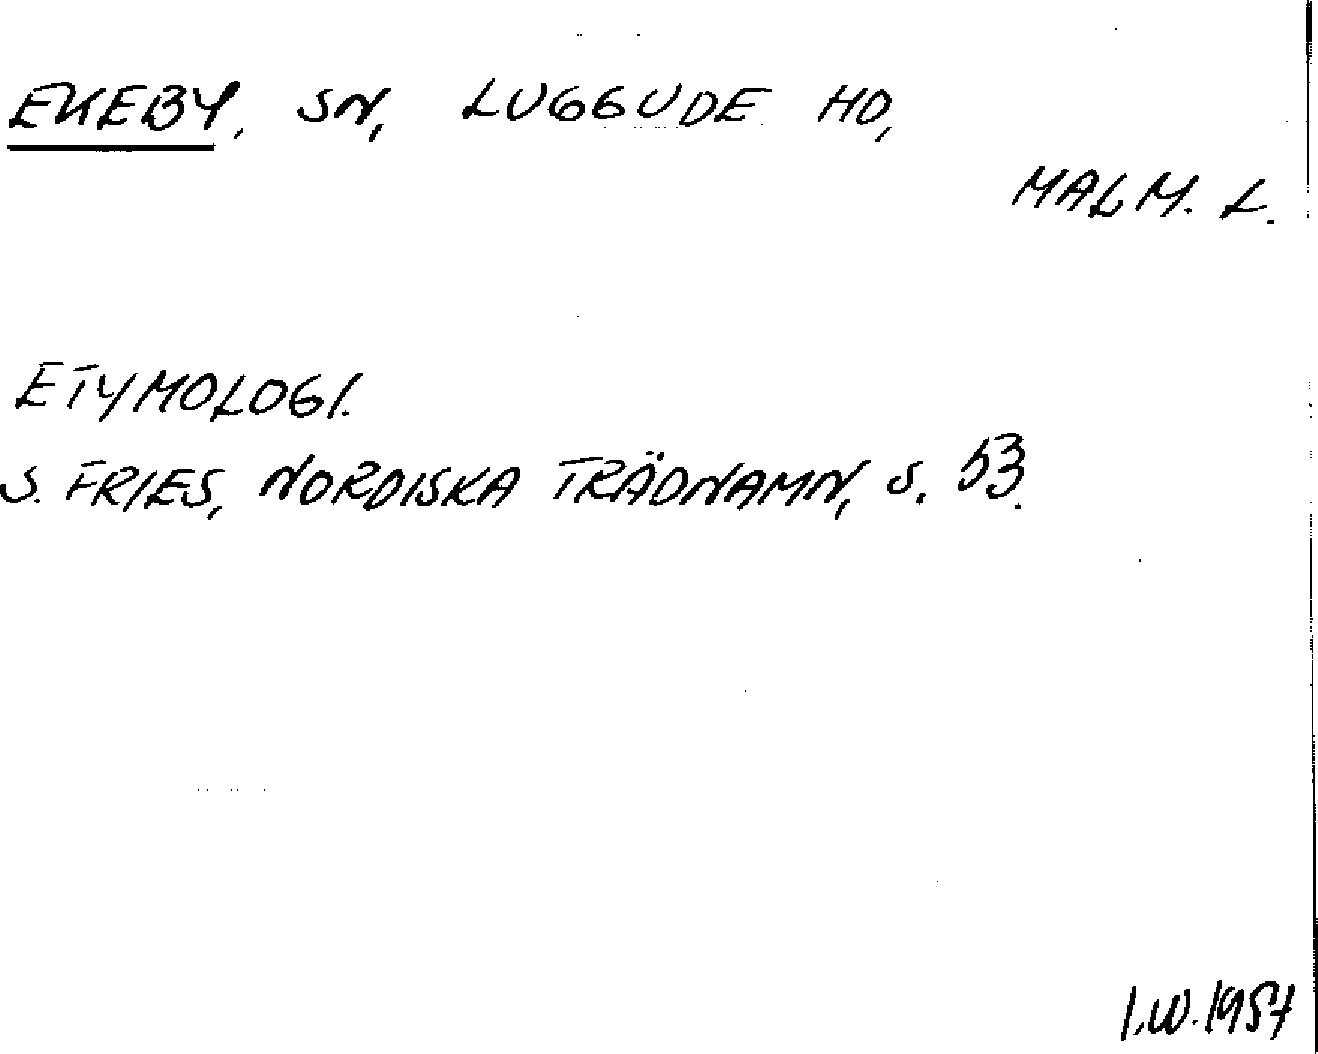 EKEBY, SN, LUGGUDE HD,
MALM. L.
ETYMOLOGI.
S. FRIES, NORDISKA TRÄDNAMN, S. 53.
I.W. 1957